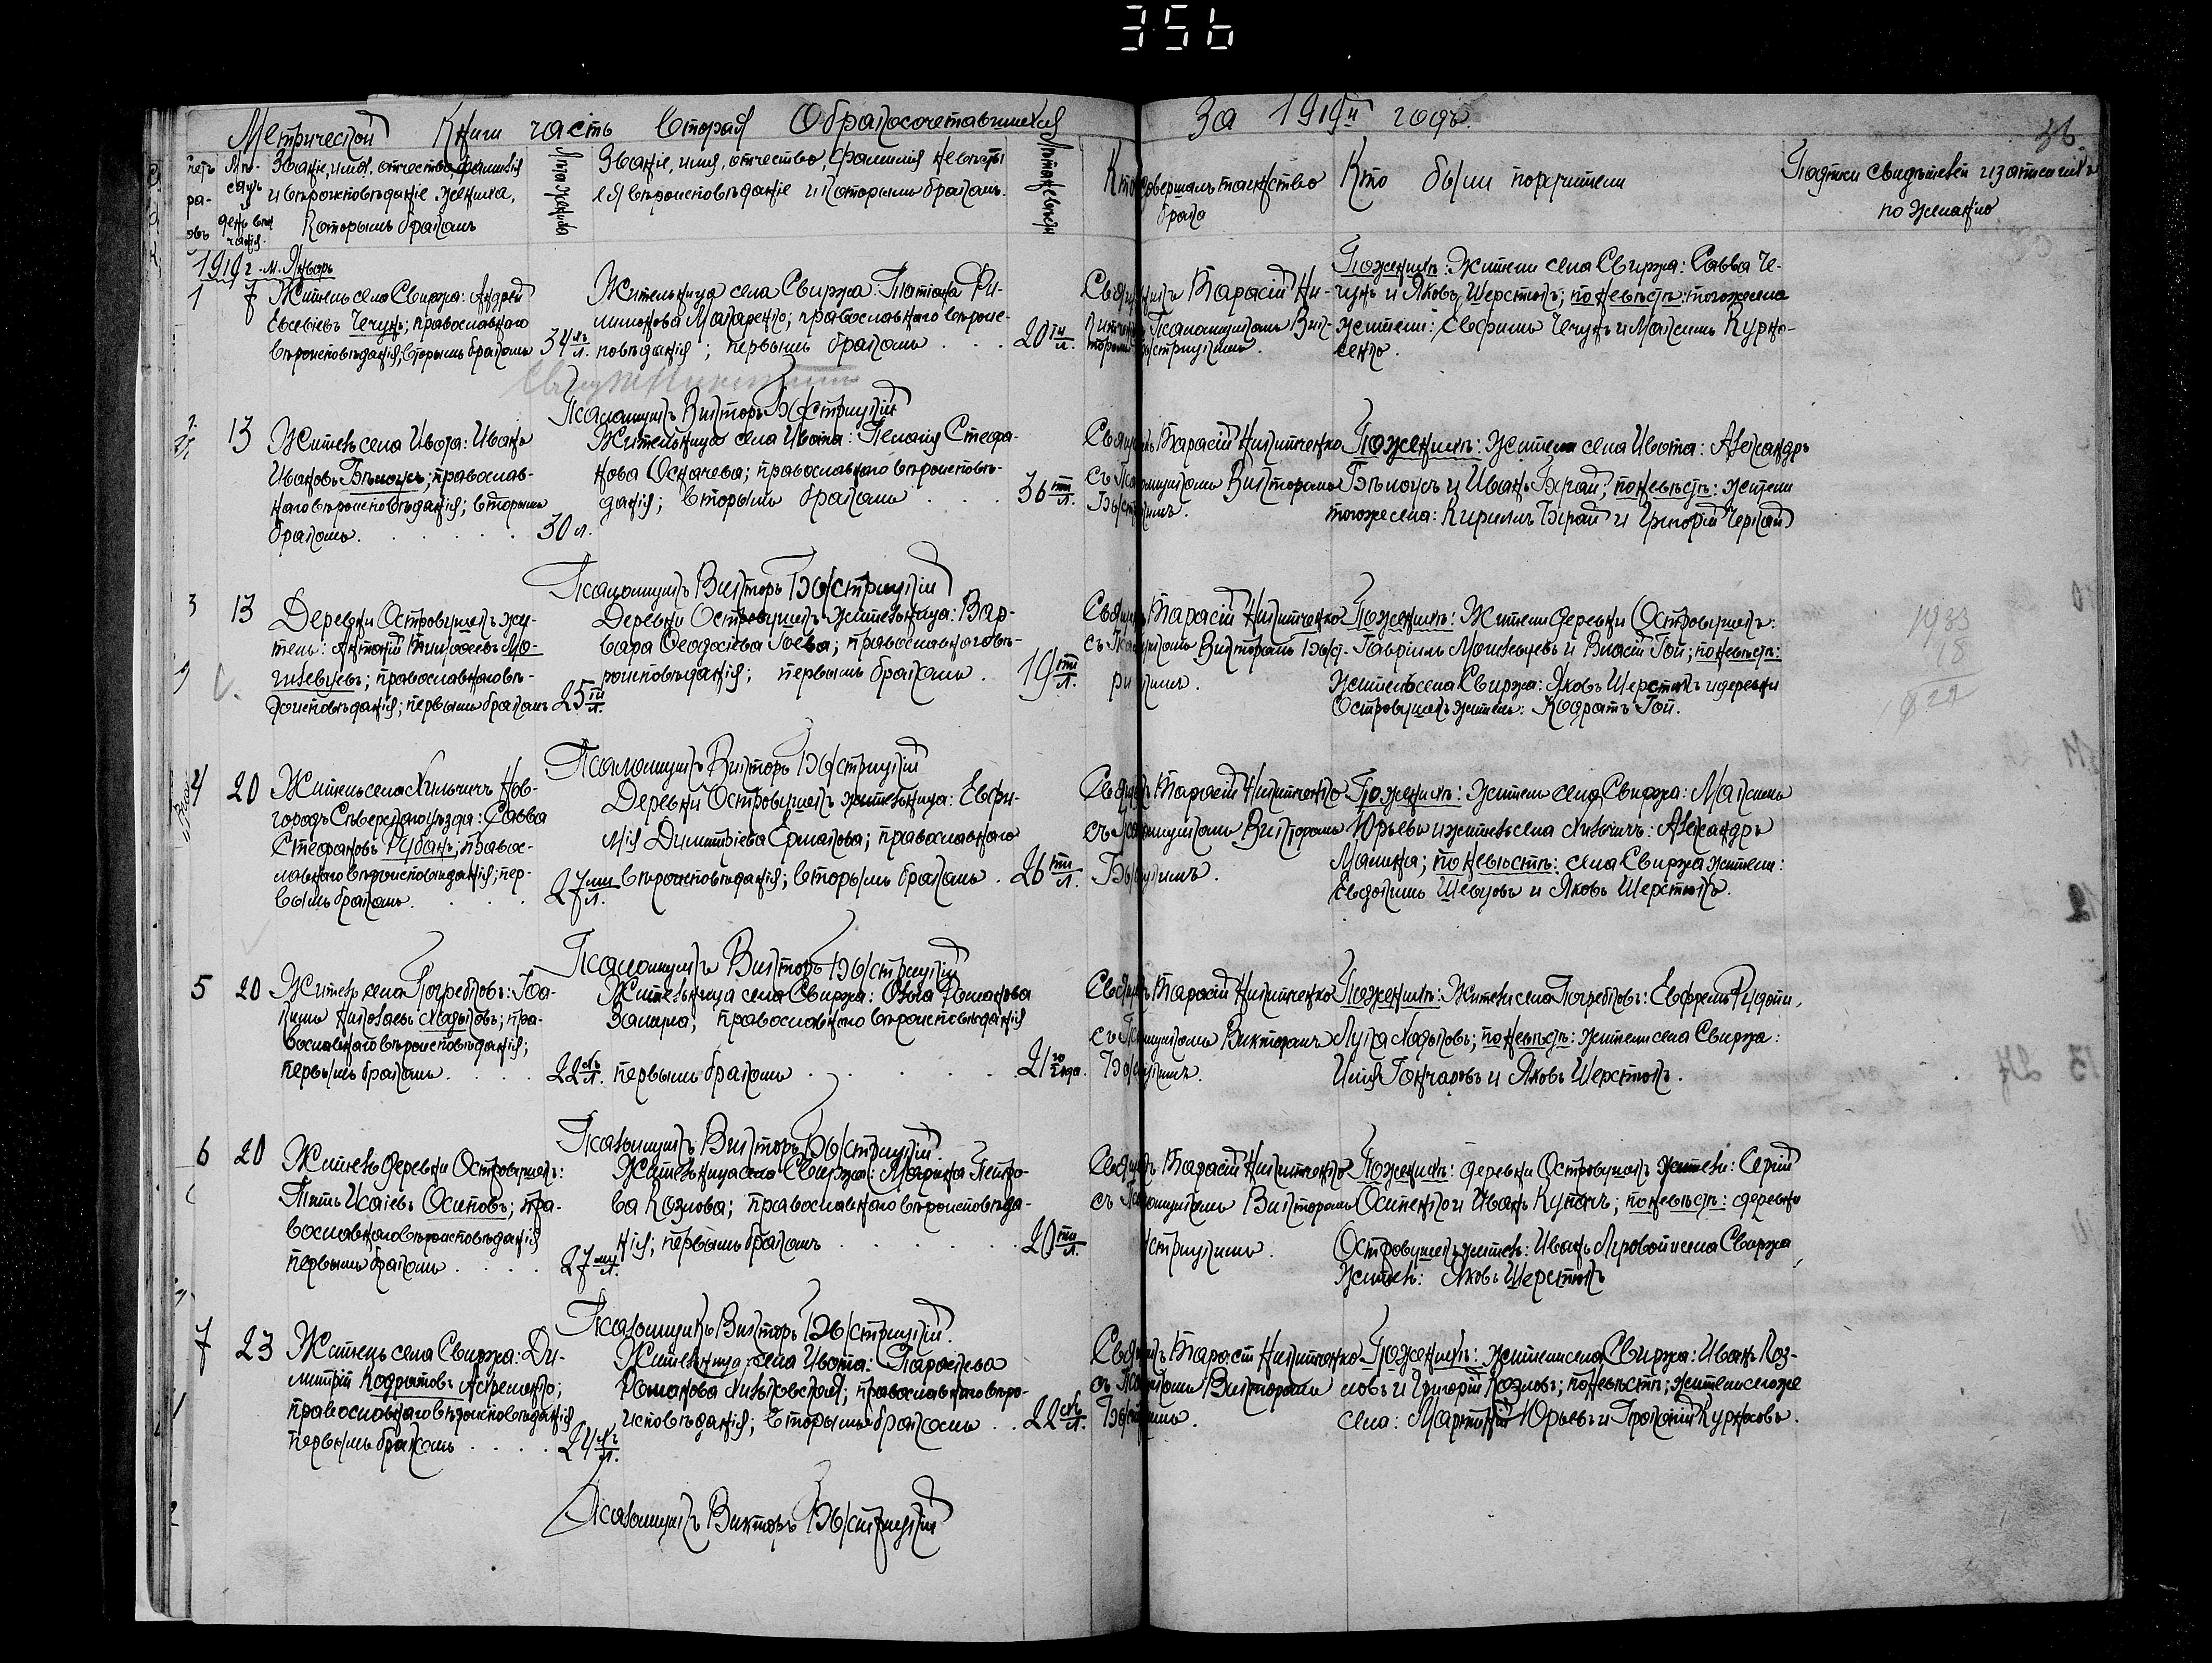 356
Метрической Книги часть вторая О бракосочетавшихся
За 1919й годъ.
36
Счетъ браковъ
Мѣсяцъ и день вѣнчанія.
Званіе, имя, отчество, фамилія
и вѣроисповѣданіе жениха,
которымъ бракомъ
Лѣта жениха
Званіе, имя, отчество, фамилія невѣсты
ея вѣроисповѣданіе и которымъ бракомъ.
Лѣта невѣсты
Кто совершалъ таинство
брака
Кто были поручители
Подписи свидѣтелей и записи ихъ
по желанію
1919 г. м. Январь
1
7
Житель села Свиржа: Андрей
Евсѣевъ Чечунъ; православнаго
вѣроисповѣданія; вторымъ бракомъ
34 л.
Жительница села Свиржа: Татіана Фи-
лимонова Макаренко; православнаго вѣроис-
повѣданія; первымъ бракомъ
20 ти л.
Тарасій Ни-
Псаломщикомъ Вик-
Поженихѣ: Жители села Свиржа: Савва Че-
чунъ и Яковъ Шерстюкъ; по невѣстѣ: тогоже села
жители: Евфимъ Чечунъ и Максимъ Курно-
сенко.
Псаломщикъ Викторъ Быстрицкій
2
13
Житель села Ивота: Иванъ
Ивановъ Бѣлоусъ; православ-
наго вѣроисповѣданія; вторымъ
бракомъ.
30 л.
Жительница села Ивота: Пелагія Стефа-
нова Осначева; православнаго вѣроисповѣ-
данія; вторымъ бракомъ
36 ти л.
Тарасій Никитченко
Псаломщикомъ Викторомъ
Поженихѣ: Жители села Ивота: Александръ
Бѣлоусъ и Иванъ Бурай; по невѣстѣ: жители
тогоже села: Кириллъ Бурай и Григорій Черкай
Псаломщикъ Викторъ Быстрицкій
3
13
Деревни Островушекъ жи-
тель: Антоній Тимоѳеевъ Мо-
исѣевъ; православнаго вѣ-
роисповѣданія; первымъ бракомъ
25 ти л.
Деревни Островушекъ жительница: Вар-
вара Ѳеодосіева Гоева; православнаго вѣ-
роисповѣданія; первымъ бракомъ.
19 ти л.
Тарасій Никитченко
Викторомъ Быст-
Поженихѣ: Жители деревни Островушекъ:
Гавріилъ и Власій Гой; по невѣстѣ:
Житель села Свиржа: Яковъ Шерстюкъ и деревни
Островушекъ житель: Кодратъ Гой.
1933
18
Псаломщикъ Викторъ Быстрицкій
4
20
Житель села Хильчичъ Нов-
городъ Сѣверскаго уѣзда: Савва
Стефановъ Рубанъ; правос-
лавнаго вѣроисповѣданія; пер-
вымъ бракомъ.
27 ми л.
Деревни Островушекъ жительница: Евфи-
мія Димитріева Ермакова; православнаго
вѣроисповѣданія; вторымъ бракомъ.
26 ти л.
Тарасій Никитченко
Викторомъ
Поженихѣ: жители села Свиржа: Максимъ
Юрьевъ и житель села Хильчичъ: Александръ
Малина; по невѣстѣ: села Свиржа жители:
Евдокимъ Шевцовъ и Яковъ Шерстюкъ.
Псаломщикъ Викторъ Быстрицкій
5
20
Житель села Погребковъ: Іоа-
кимъ Николаевъ Ладыковъ; пра-
вославнаго вѣроисповѣданія;
первымъ бракомъ.
22 хъ л.
Жительница села Свиржа: Ольга Романова
православнаго вѣроисповѣданія
первымъ бракомъ
21 го года.
Тарасій Никитченко
Викторомъ
Поженихѣ: Жители села Погребковъ: Евфремъ
Лука Ладыковъ; по невѣстѣ: жители села Свиржа:
Илія Гончаровъ и Яковъ Шерстюкъ.
Псаломщикъ Викторъ Быстрицкій.
6
20
Житель деревни Островушекъ:
Титъ Исаіевъ Осиповъ; пра-
вославнаго вѣроисповѣданія
первымъ бракомъ
27 ми л.
Жительница села Свиржа: Марина Петро-
ва Козлова; православнаго вѣроисповѣда-
нія; первымъ бракомъ
20 ти л.
Тарасій Никитченко
Викторомъ
Поженихѣ: деревни Островушекъ жители: Сергій
Осипенко и Иванъ Купачъ; по невѣстѣ: деревни
Островушекъ житель: Иванъ Лѣровой и села Свиржа
житель: Яковъ Шерстюкъ
Псаломщикъ Викторъ Быстрицкій.
7
23
Житель села Свиржа: Ди-
митрій Кодратовъ Ахременко;
православнаго вѣроисповѣданія
первымъ бракомъ
24 хъ л.
Жительница села Ивота: Параскева
Романова Хильковская; православнаго вѣро-
исповѣданія; вторымъ бракомъ
22 хъ л.
Тарасій Никитченко
Викторомъ
Поженихѣ: жители села Свиржа: Иванъ Коз-
ловъ и Григорій Козловъ; по невѣстѣ: жители тогоже
села: Мартиній Юрьевъ и Прокопій Курносовъ.
Псаломщикъ Викторъ Быстрицкій